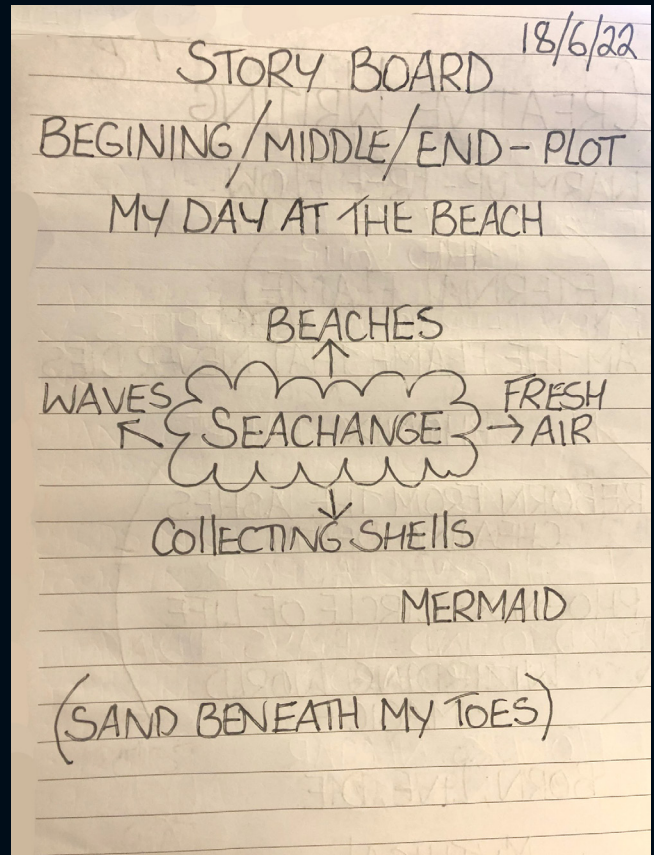 18/6/22
STORY BOARD
BEGINING/MIDDLE/END - PLOT
MY DAY AT THE BEACH
BEACHES
WAVES
SEACHANGE
FRESH
AIR
COllECTING SHElls
MERMAID
(SAND BENEATH MY TOES)